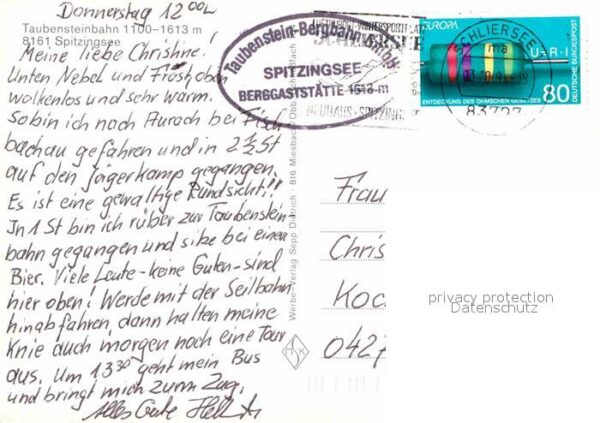 Donnerstag 12 00h
Taubensteinbahn 1100–1613 m
8161 Spitzingsee
Meine liebe Christine!
Unten Nebel und Frost, oben
wolkenlos und sehr warm.
So bin ich nach Aurach bei Fisch
bachau gefahren und in 2 1/2 St
auf den Jägerkamp gegangen.
Es ist eine gewaltige Rundsicht!!
In 1 St bin ich rüber zur Taubenstein
bahn gegangen und sitze bei einem
Bier. Viele Leute - keine Guten - sind
hier oben! Werde mit der Seilbahn
hinabfahren, dann halten meine
Knie auch morgen noch eine Tour
aus. Um 13 30 geht mein Bus
und bringt mich zum Zug.
Alles Gute
Werbe-Verlag Sepp Dietrich · 816 Miesbach
Taubenstein-Bergbahn
SPITZINGSEE
BERGGASTSTÄTTE 1613 m
NEUHAUS · SPITZINGSEE
SCHLIERSEE
ma
83727
EUROPA
U=R·I
ENTDECKUNG DES OHMSCHEN GESETZES
80
DEUTSCHE BUNDESPOST
Frau
Chris
Koc
0427
privacy protection
Datenschutz